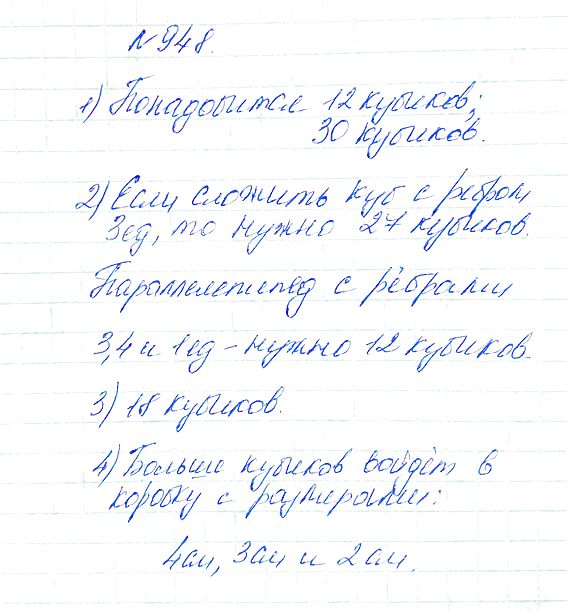 №948.
1) Понадобится 12 кубиков;
30 кубиков.
2) Если сложить куб с ребром
3ед, то нужно 27 кубиков.
Параллелепипед с рёбрами
3,4 и 1ед - нужно 12 кубиков.
3) 18 кубиков.
4) Больше кубиков войдёт в
коробку с размерами:
4см, 3см и 2см.